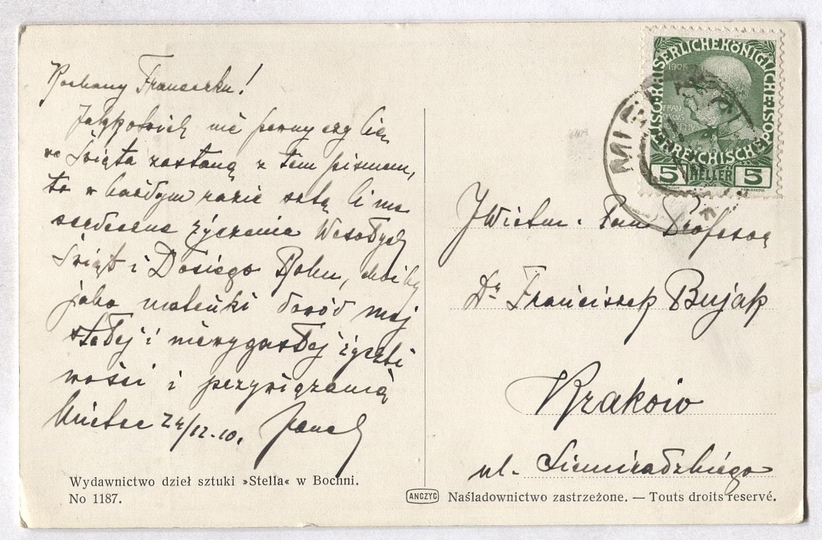 Kochany Franciszku!
Jakkolwiek nie pewny czy Cię
te Święta zastaną z tem pismem,
to w każdym razie szlę Ci me
serdeczne życzenia Wesołych
Świąt i Dosiego Roku, choćby
jako maleńki dowód mej
stałej i niewygasłej życzli
wości i przywiązania
Mielec 24/12-10.
Wydawnictwo dzieł sztuki »Stella« w Bochni.
No 1187.
KAISERLICHE KÖNIGLICHE ÖSTERREICHISCHE POST
1908
5 HELLER 5
MI
JWielm. Pan Profesor
Dr Franciszek Bujak
Kraków
ul. Siemiradzkiego
ANCZYC Naśladownictwo zastrzeżone. — Touts droits reservé.